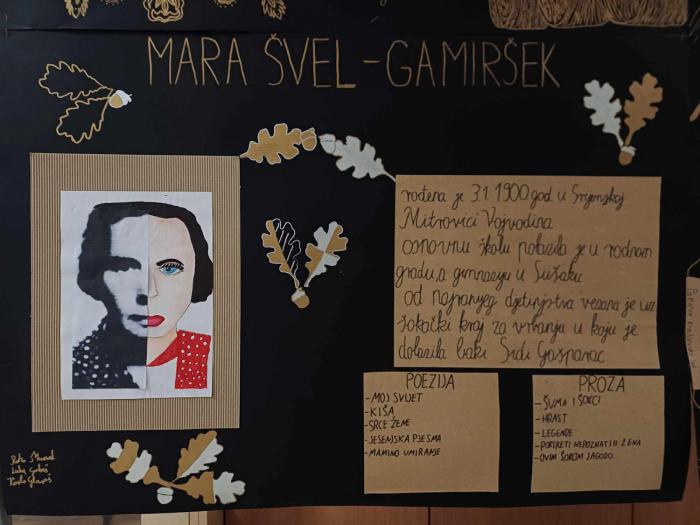 MARA ŠVEL-GAMIRŠEK
rođena je 3.1.1900.god. u Srijemskoj
Mitrovici Vojvodina
osnovnu školu polazila je u rodnom
gradu,a gimnaziju u Sušaku
od najranijeg djetinjstva vezana je uz
šokački kraj za Vrbanju u koju je
dolazila baki Sidi Gašparac
POEZIJA
-MOJ SVIJET
-KIŠA
-SRCE ŽENE
-JESENSKA PJESMA
-MAMINO UMIRANJE
PROZA
-ŠUMA I ŠOKCI
-HRAST
-LEGENDE
-PORTRETI NEPOZNATIH ŽENA
-OVIM ŠORCIM JAGODO